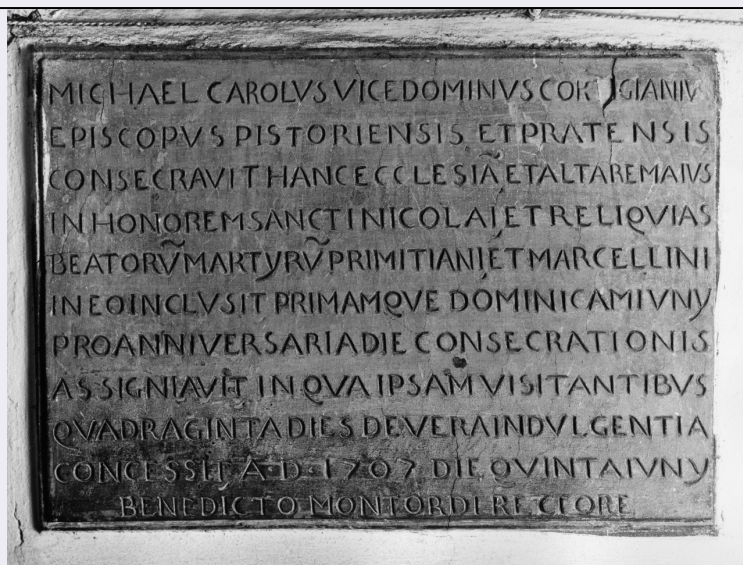 MICHAEL CAROLVS VICEDOMINVS CORTIGIANIVS
EPISCOPVS PISTORIENSIS ET PRATENSIS
CONSECRAVIT HANC ECCLESIÃ ET ALTARE MAIVS
IN HONOREM SANCTI NICOLAI ET RELIQVIAS
BEATORṼ MARTYRṼ PRIMITIANI ET MARCELLINI
IN EO INCLVSIT PRIMAMQVE DOMINICAM IVNY
PRO ANNIVERSARIA DIE CONSECRATIONIS
ASSIGNIAVIT IN QVA IPSAM VISITANTIBVS
QVADRAGINTA DIES DE VERA INDVLGENTIA
CONCESSIT A·D·1707 DIE QVINTA IVNY
BENEDICTO MONTORDI RECTORE